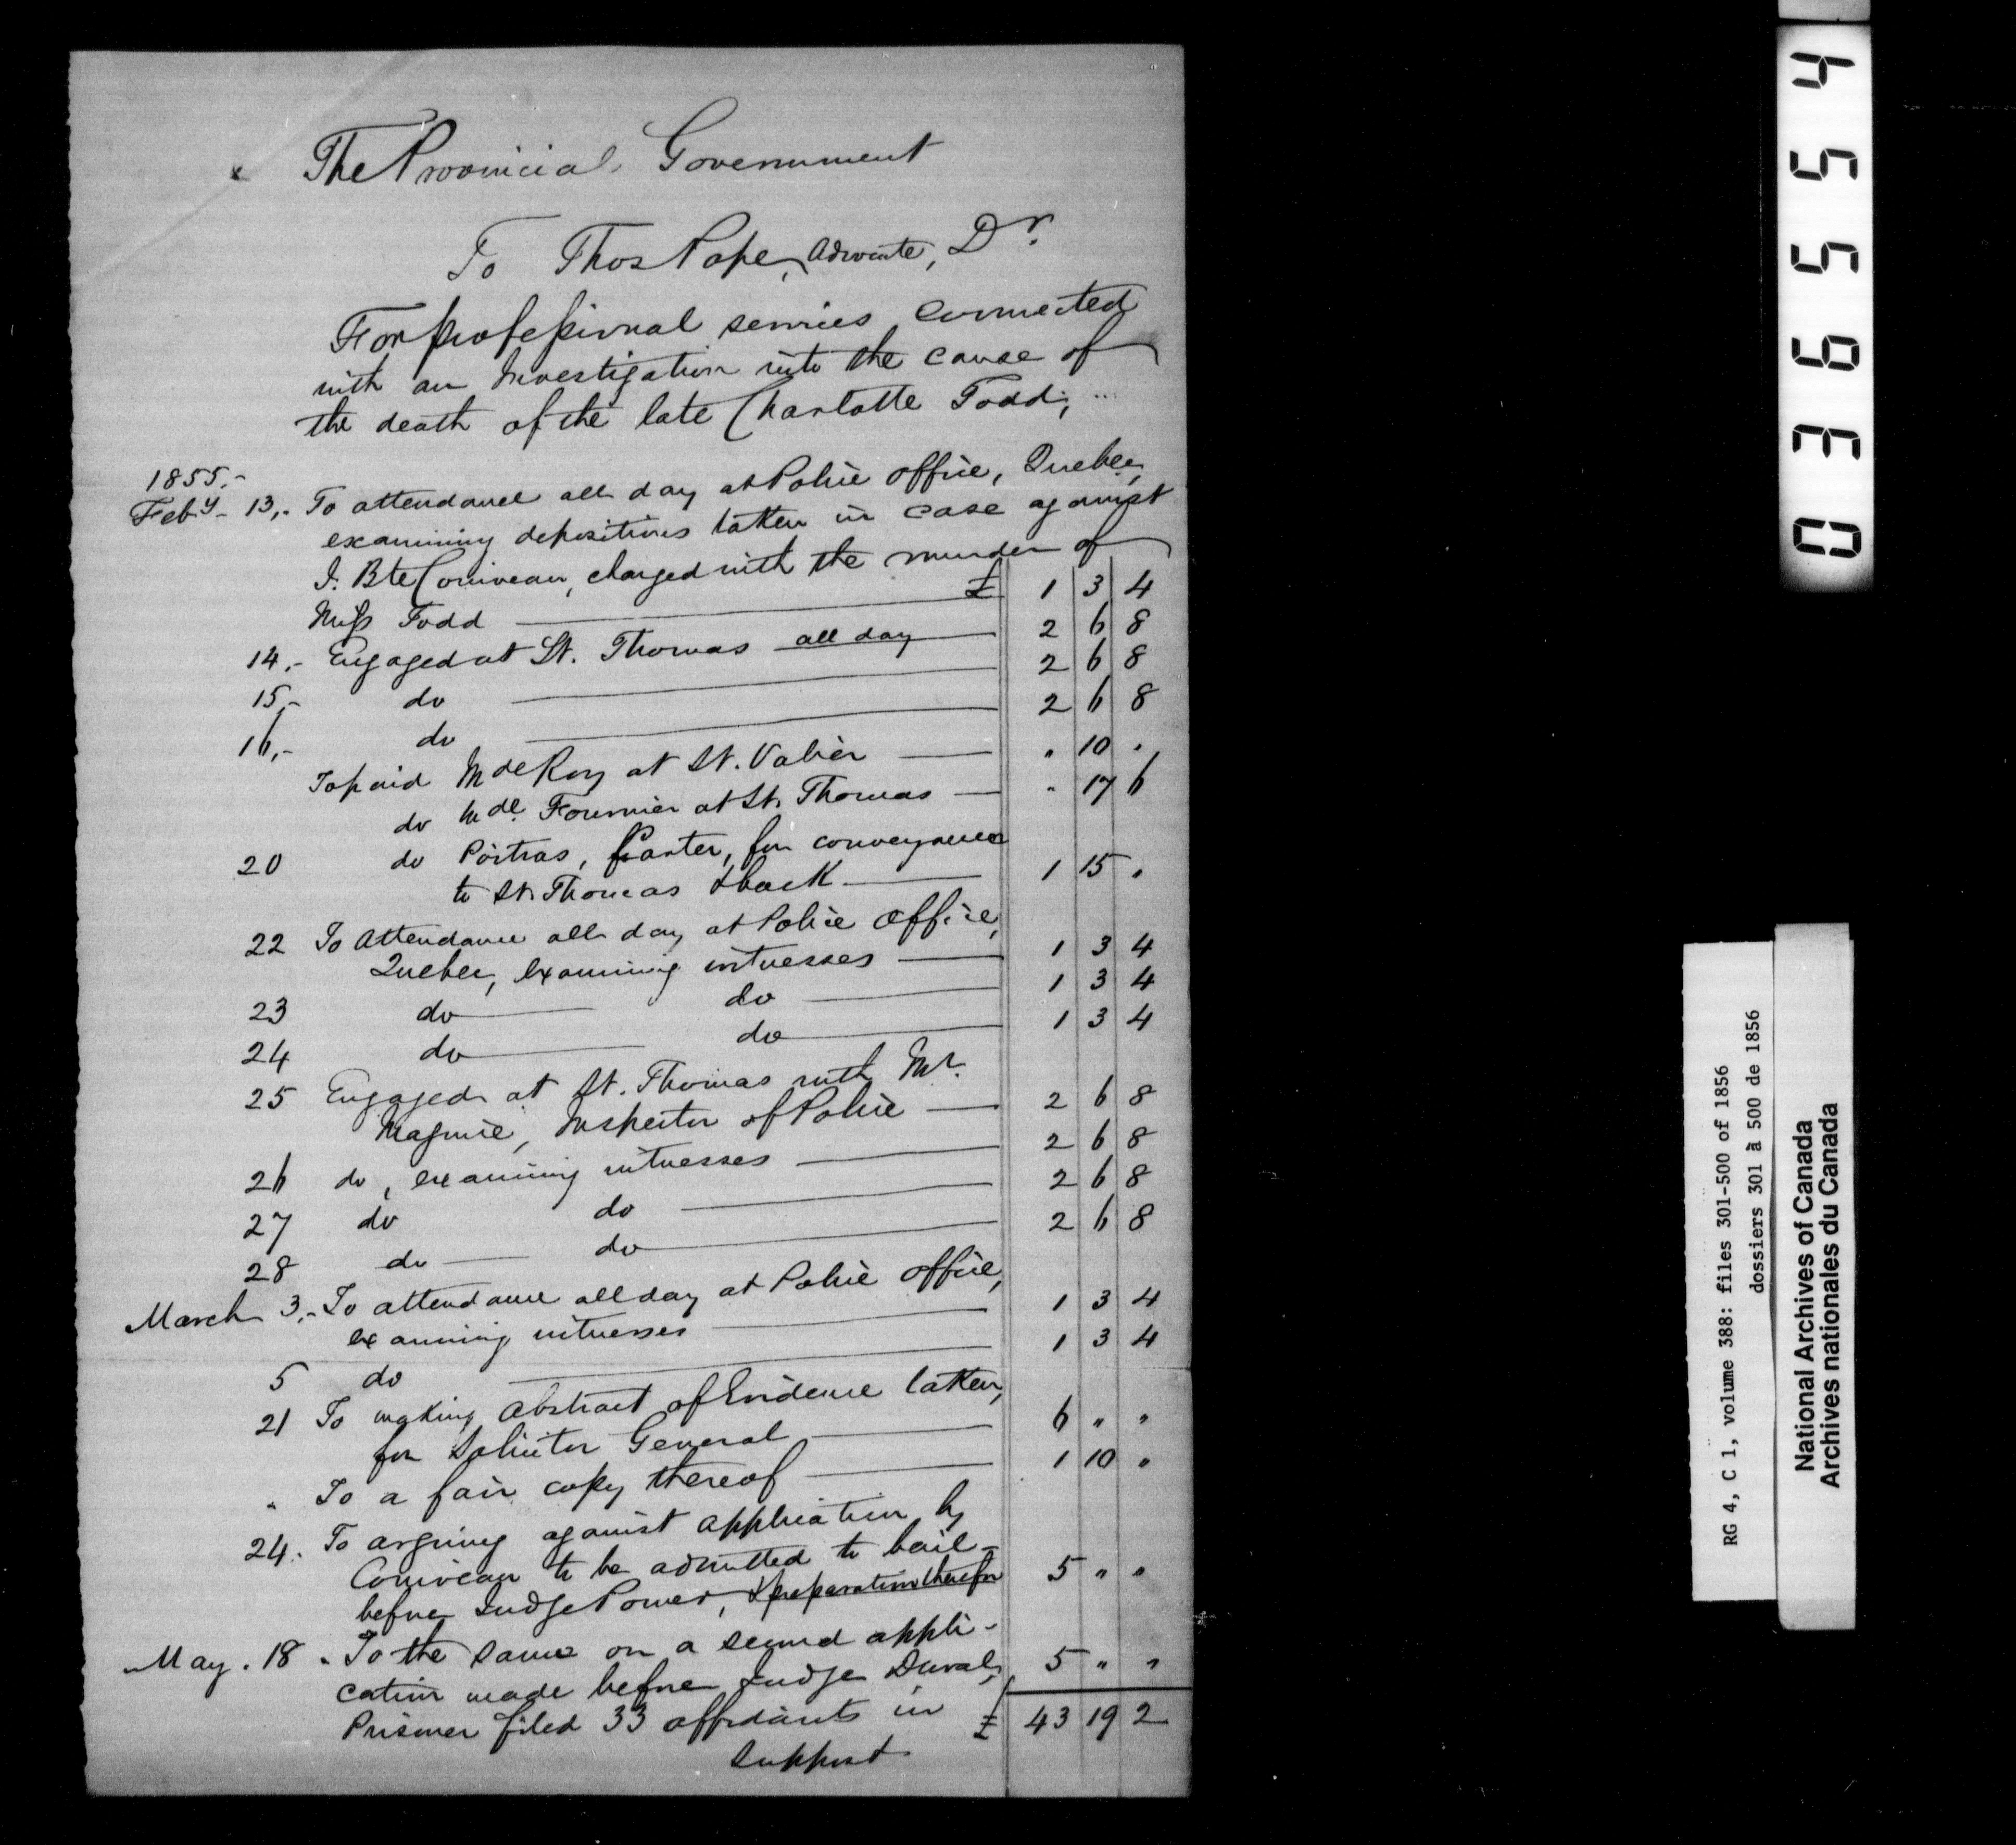 The Provincial Government
To Thos Pope, Advocate, Dr.
For professional services connected
with an Investigation into the cause of
the death of the late Charlotte Todd;
1855.-
Feby- 13,- To attendance all day at Police office, Quebec,
examining depositions taken in case against
J. Bte Corriveau, charged with the murder of
Miss Todd £ 1 3 4
14,- Engaged at St. Thomas all day 2 6 8
15,- do 2 6 8
16,- do 2 6 8
To paid Mde Roy at St. Valier " 10 "
do Mde. Fournier at St. Thomas " 17 6
20 do Poitras, Carter, for conveyance
to St. Thomas & back 1 15 "
22 To Attendance all day at Police Office,
Quebec, examining witnesses 1 3 4
23 do do 1 3 4
24 do do 1 3 4
25 Engaged at St. Thomas with Mr.
Maguire, Inspector of Police 2 6 8
26 do, examining witnesses 2 6 8
27 do do 2 6 8
28 do do 2 6 8
March 3,- To attendance all day at Police office,
examining witnesses 1 3 4
5 do 1 3 4
21 To making Abstract of Evidence taken,
for Solicitor General 6 " "
" To a fair copy thereof 1 10 "
24. To arguing against application by
Corriveau to be admitted to bail-
before Judge Power, & preparation therefor 5 " "
May. 18 . To the same on a second appli-
cation made before Judge Duval, 5 " "
Prisoner filed 33 affidavits in £ 43 19 2
support
03 6554
RG 4, C 1, volume 388: files 301-500 of 1856
dossiers 301 à 500 de 1856
National Archives of Canada
Archives nationales du Canada